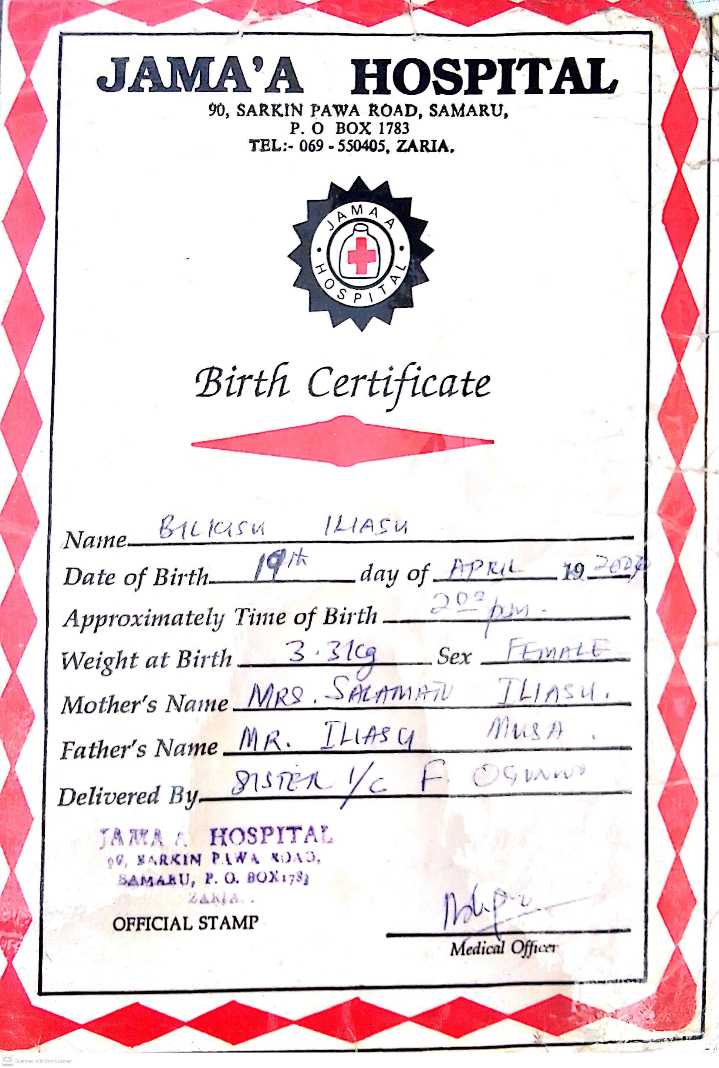 JAMA'A HOSPITAL
90, SARKIN PAWA ROAD, SAMARU,
P. O BOX 1783
TEL:- 069 - 550405, ZARIA.
JAMAA HOSPITAL
Birth Certificate
Name BILKISU ILIASU
Date of Birth 19th day of APRIL 19
Approximately Time of Birth 2 00 pm.
Weight at Birth 3.31Kg Sex FEMALE
Mother's Name MRS. SALAMATU ILIASU.
Father's Name MR. ILIASU MUSA.
Delivered By SISTER I/C F
JAMA A HOSPITAL
90, SARKIN PAWA ROAD,
SAMARU, P. O. BOX 1783
ZARIA.
OFFICIAL STAMP
Medical Officer